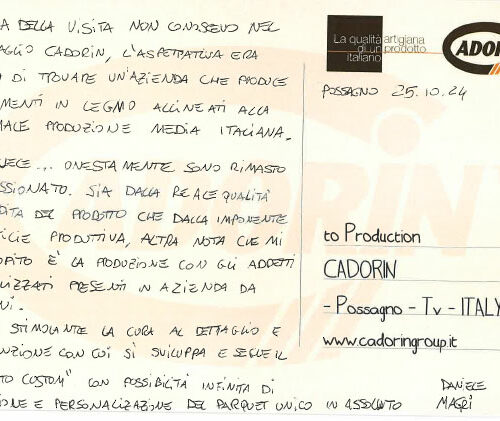 A DELLA VISITA NON CONOSCEVO NEL
AGLIO CADORIN, L'ASPETTATIVA ERA
A DI TROVARE UN'AZIENDA CHE PRODUCE
MENTI IN LEGNO ALLINEATI ALLA
ALE PRODUZIONE MEDIA ITALIANA.
ECE... ONESTAMENTE SONO RIMASTO
SSIONATO. SIA DALLA REALE QUALITÀ
DITA DEL PRODOTTO CHE DALLA IMPONENTE
FICIE PRODUTTIVA, ALTRA NOTA CHE MI
OPITO È LA PRODUZIONE CON GLI ADDETTI
LIZZATI PRESENTI IN AZIENDA DA
NI.
STIMOLANTE LA CURA AL DETTAGLIO E
NZIONE CON CUI SI SVILUPPA E SEGUE IL
TO CUSTOM" CON POSSIBILITÀ INFINITA DI
IONE E PERSONALIZZAZIONE DEL PARQUET UNICO IN ASSOLUTO
La qualità artigiana
di un prodotto
italiano
ADOR
POSSAGNO 25.10.24
to Production
CADORIN
- Possagno - Tv - ITALY
www.cadoringroup.it
DANIELE
MAGRÌ
ADORIN